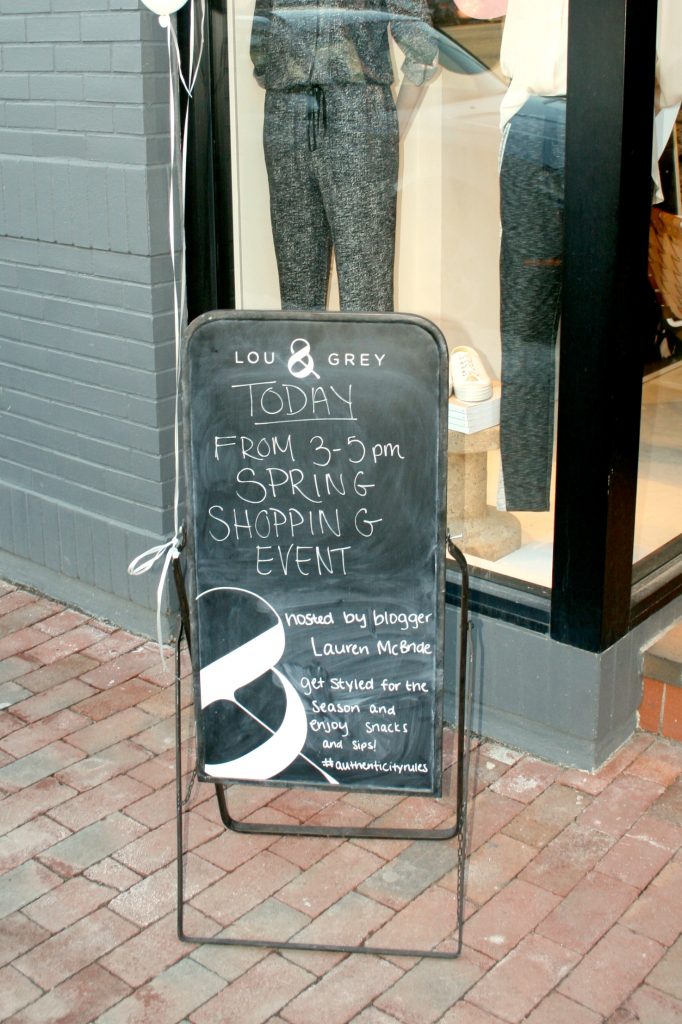 LOU & GREY
TODAY
FROM 3-5pm
SPRING
SHOPPING
EVENT
hosted by blogger
Lauren McBride
get styled for the
season and
enjoy snacks
and sips!
#authenticityrules